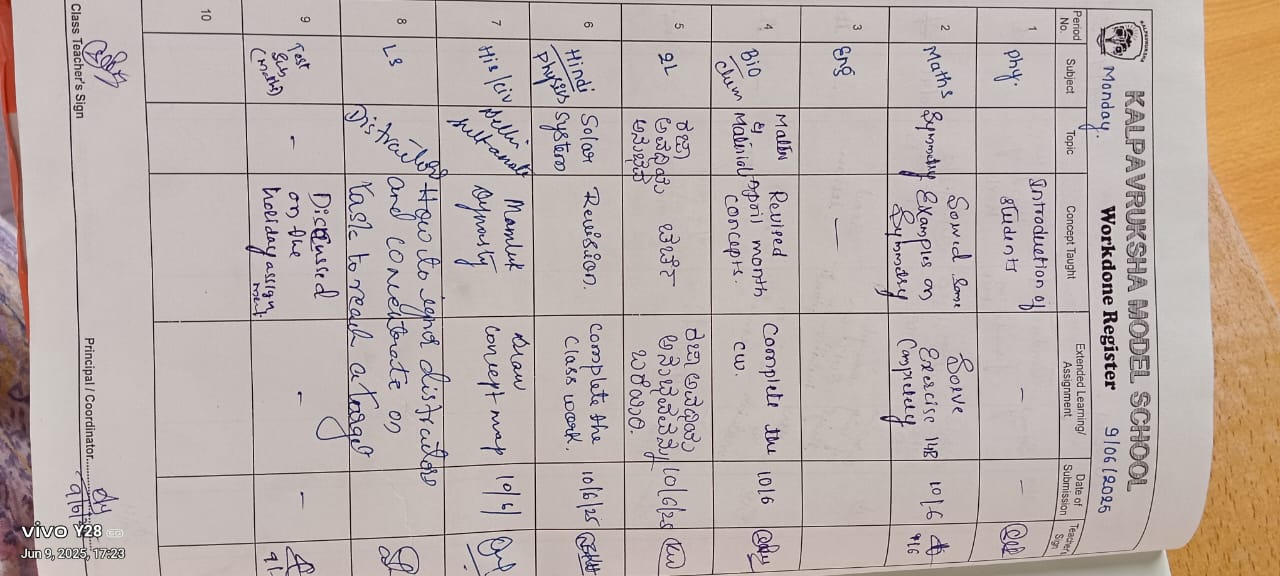 KALPAVRUKSHA MODEL SCHOOL
Monday. Workdone Register 9/06/2025
Period No. Subject Topic Concept Taught Extended Learning/ Assignment Date of Submission Teacher Sign
1 Phy. Introduction of students - -
2 Maths Symmetry Solved some Examples on Symmetry Solve Exercise 14B Completely 10/6
9/6
3 Eng -
4 Bio/Chem Matter & Material Revised April month concepts. Complete the cw. 10/6
5 2L 10/6/25
6 Hindi Physics Solar System Revision. Complete the Class work. 10/6/25
7 His/civ Delhi Sultanate Mamluk Dynasty Draw concept map 10/6/
8 LS Distractors How to ignore distractors and concentrate on task to reach a target
9 Test Sub (Maths) - Discussed on the holiday assignment - -
10
Class Teacher's Sign
Principal / Coordinator
9/6/2
vivo Y28
Jun 9, 2025, 17:23